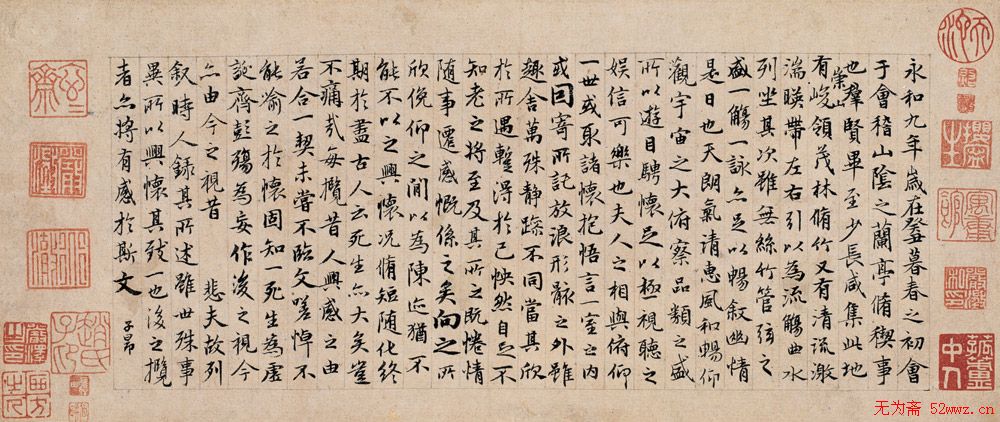 永和九年歲在癸丑暮春之初會
于會稽山陰之蘭亭脩稧事
也羣賢畢至少長咸集此地
有崇山峻領茂林脩竹又有清流激
湍暎帶左右引以為流觴曲水
列坐其次雖無絲竹管弦之
盛一觴一詠亦足以暢敘幽情
是日也天朗氣清惠風和暢仰
觀宇宙之大俯察品類之盛
所以遊目騁懷足以極視聽之
娛信可樂也夫人之相與俯仰
一世或取諸懷抱悟言一室之內
或因寄所託放浪形骸之外雖
趣舍萬殊靜躁不同當其欣
於所遇蹔得於己怏然自足不
知老之將至及其所之既惓情
隨事遷感慨係之矣向之所
欣俛仰之間以為陳迹猶不
能不以之興懷況脩短隨化終
期於盡古人云死生亦大矣豈
不痛哉每攬昔人興感之由
若合一契未嘗不臨文嗟悼不
能喻之於懷固知一死生為虛
誕齊彭殤為妄作後之視今
亦由今之視昔 悲夫故列
敘時人錄其所述雖世殊事
異所以興懷其致一也後之攬
者亦將有感於斯文
子昂
趙氏子昂
无为斋 52wwz.cn